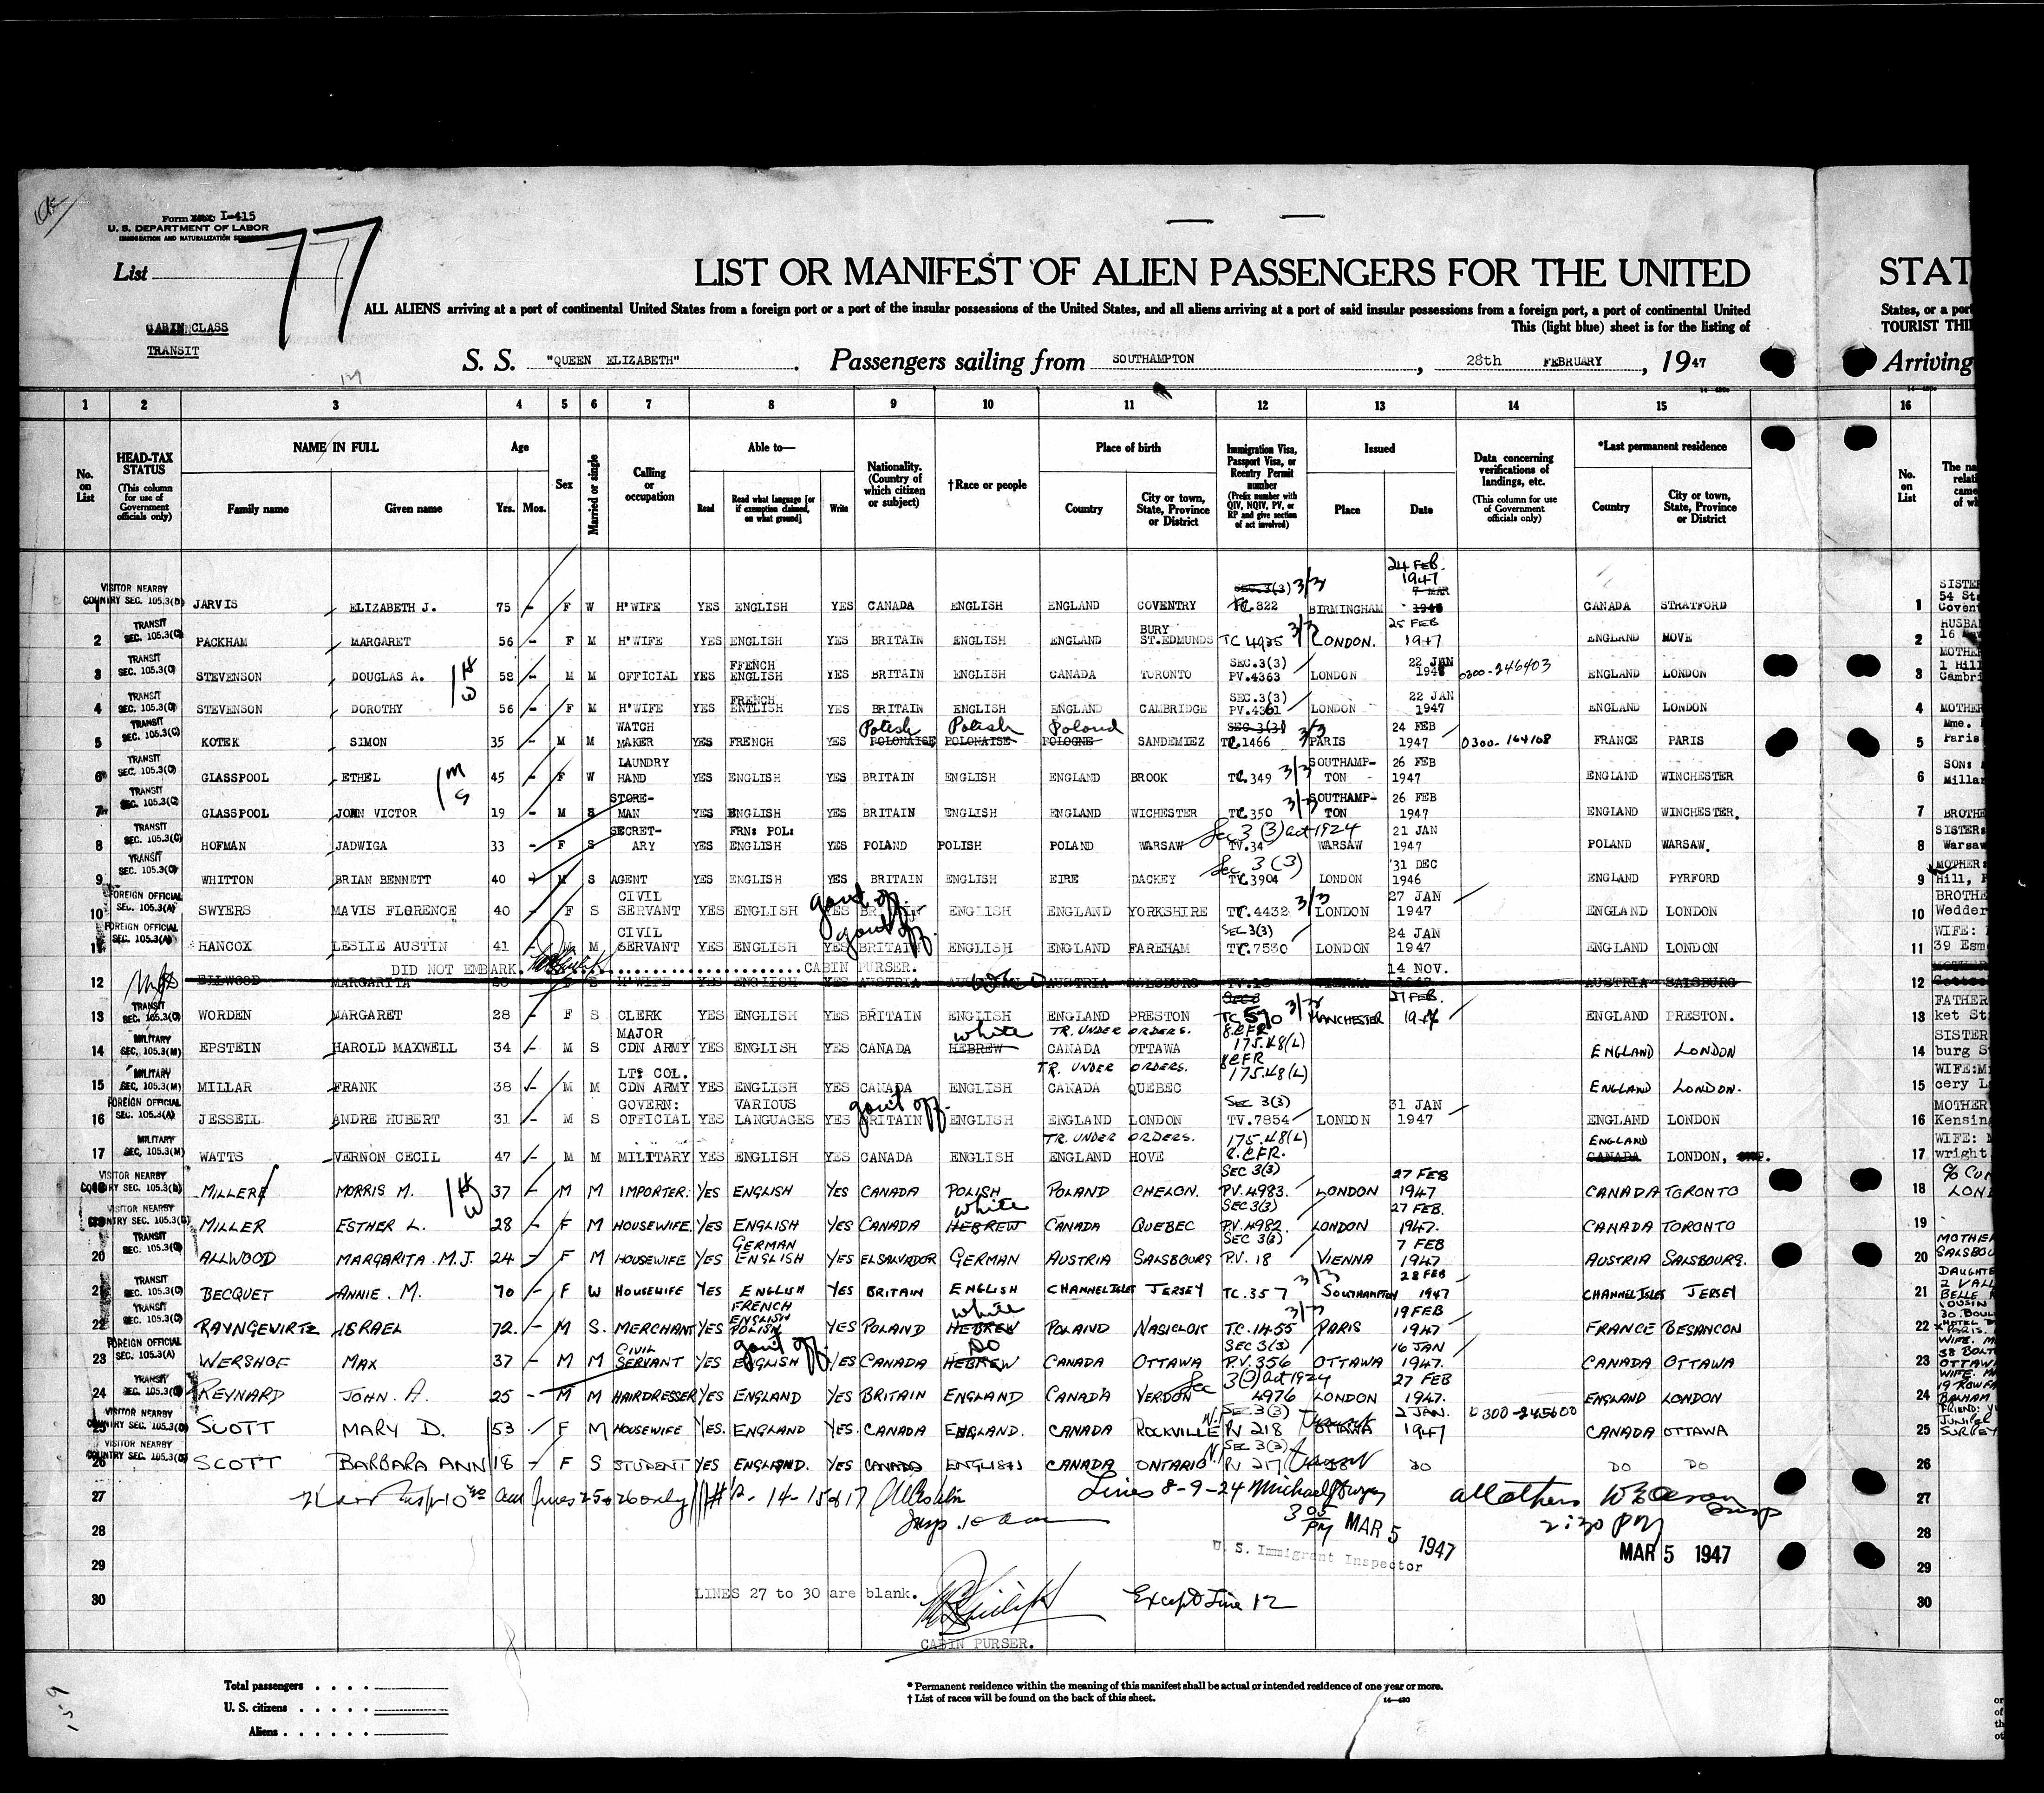 Form I-415
U. S. DEPARTMENT OF LABOR
IMMIGRATION AND NATURALIZATION SERVICE
77
List
LIST OR MANIFEST OF ALIEN PASSENGERS FOR THE UNITED
STAT
ALL ALIENS arriving at a port of continental United States from a foreign port or a port of the insular possessions of the United States, and all aliens arriving at a port of said insular possessions from a foreign port, a port of continental United
States, or a port
CABIN CLASS
This (light blue) sheet is for the listing of
TOURIST THI
TRANSIT
S. S. "QUEEN ELIZABETH". Passengers sailing from SOUTHAMPTON, 28th FEBRUARY, 1947
Arriving
1 2 3 4 5 6 7 8 9 10 11 12 13 14 15 16
No. on List
HEAD-TAX STATUS (This column for use of Government officials only)
NAME IN FULL Family name Given name
Age Yrs. Mos.
Sex
Married or single
Calling or occupation
Able to— Read Read what language [or if exemption claimed, on what ground] Write
Nationality. (Country of which citizen or subject)
†Race or people
Place of birth Country City or town, State, Province or District
Immigration Visa, Passport Visa, or Reentry Permit number (Prefix number with QIV, NQIV, PV, or RP and give section of act involved)
Issued Place Date
Data concerning verifications of landings, etc. (This column for use of Government officials only)
*Last permanent residence Country City or town, State, Province or District
No. on List
The na
relati
came
of wh
1 VISITOR NEARBY COUNTRY SEC. 105.3(D) JARVIS ELIZABETH J. 75 - F W H'WIFE YES ENGLISH YES CANADA ENGLISH ENGLAND COVENTRY SEC.3(3) 3/3 TC.822 BIRMINGHAM 24 FEB. 1947 CANADA STRATFORD 1 SISTER 54 Sta Covent
2 TRANSIT SEC. 105.3(C) PACKHAM MARGARET 56 - F M H'WIFE YES ENGLISH YES BRITAIN ENGLISH ENGLAND BURY ST.EDMUNDS TC 4935 3/3 LONDON. 25 FEB 1947 ENGLAND HOVE 2 HUSBA 16
3 TRANSIT SEC. 105.3(C) STEVENSON DOUGLAS A. 58 - M M OFFICIAL YES FFENCH ENGLISH YES BRITAIN ENGLISH CANADA TORONTO SEC.3(3) PV.4363 LONDON 22 JAN 0300-246403 ENGLAND LONDON 3 MOTHE 1 Hill Cambri
4 TRANSIT SEC. 105.3(C) STEVENSON DOROTHY 56 - F M H'WIFE YES FRENCH ENTLISH YES BRITAIN ENGLISH ENGLAND CAMBRIDGE SEC.3(3) PV.4361 LONDON 22 JAN 1947 ENGLAND LONDON 4 MOTHER
5 TRANSIT SEC. 105.3(C) KOTEK SIMON 35 - M M WATCH MAKER YES FRENCH YES Polish POLONAISE Polish POLONAISE Poland POLOGNE SANDEMIEZ SEC 3(3) 3/3 TC.1466 PARIS 24 FEB 1947 0300-164108 FRANCE PARIS 5 Mme. Paris
6 TRANSIT SEC. 105.3(C) GLASSPOOL ETHEL 45 - F W LAUNDRY HAND YES ENGLISH YES BRITAIN ENGLISH ENGLAND BROOK TC.349 3/3 SOUTHAMP-TON 26 FEB 1947 ENGLAND WINCHESTER 6 SON: Millar
7 TRANSIT SEC. 105.3(C) GLASSPOOL JOHN VICTOR 19 - M S STORE-MAN YES ENGLISH YES BRITAIN ENGLISH ENGLAND WICHESTER TC.350 3/3 SOUTHAMP-TON 26 FEB 1947 ENGLAND WINCHESTER. 7 BROTHE
8 TRANSIT SEC. 105.3(C) HOFMAN JADWIGA 33 - F S SECRET-ARY YES FRN: POL: ENGLISH YES POLAND POLISH POLAND WARSAW Sec 3 (3) act 1924 TV.34 WARSAW 21 JAN 1947 POLAND WARSAW. 8 SISTER: Warsaw
9 TRANSIT SEC. 105.3(C) WHITTON BRIAN BENNETT 40 - M S AGENT YES ENGLISH YES BRITAIN ENGLISH EIRE DACKEY Sec 3 (3) TV.3904 LONDON 31 DEC 1946 ENGLAND PYRFORD 9 MOTHER: Hill,
10 FOREIGN OFFICIAL SEC. 105.3(A) SWYERS MAVIS FLORENCE 40 - F S CIVIL SERVANT YES ENGLISH YES BRITAIN gov't off. ENGLISH ENGLAND YORKSHIRE TC.4432 3/3 LONDON 27 JAN 1947 ENGLAND LONDON 10 BROTHE Wedder
11 FOREIGN OFFICIAL SEC. 105.3(A) HANCOX LESLIE AUSTIN 41 - M M CIVIL SERVANT YES ENGLISH YES BRITAIN gov't off. ENGLISH ENGLAND FAREHAM SEC 3(3) TC.7530 LONDON 24 JAN 1947 ENGLAND LONDON 11 WIFE: 39 Esm
DID NOT EMBARK CABIN PURSER.
12 ELLWOOD MARGARITA H'WIFE YES ENGLISH YES AUSTRIA AUSTRIA SALSBURG TV.18 VIENNA 14 NOV. AUSTRIA SALSBURG 12
13 TRANSIT SEC. 105.3(C) WORDEN MARGARET 28 - F S CLERK YES ENGLISH YES BRITAIN ENGLISH ENGLAND PRESTON TC 570 3/3 MANCHESTER 27 FEB. 1947 ENGLAND PRESTON. 13 FATHER ket St
14 MILITARY SEC. 105.3(M) EPSTEIN HAROLD MAXWELL 34 - M S MAJOR CDN ARMY YES ENGLISH YES CANADA white HEBREW TR. UNDER ORDERS. CANADA OTTAWA 8.CFR 175.48(L) ENGLAND LONDON 14 SISTER burg S
15 MILITARY SEC. 105.3(M) MILLAR FRANK 38 - M M LT: COL. CDN ARMY YES ENGLISH YES CANADA ENGLISH TR. UNDER ORDERS. CANADA QUEBEC 8CFR 175.48(L) ENGLAND LONDON. 15 WIFE:M cery L
16 FOREIGN OFFICIAL SEC. 105.3(A) JESSELL ANDRE HUBERT 31 - M S GOVERN: OFFICIAL YES VARIOUS LANGUAGES YES BRITAIN gov't off. ENGLISH ENGLAND LONDON SEC 3(3) TV.7854 LONDON 31 JAN 1947 ENGLAND LONDON 16 MOTHER Kensin
17 MILITARY SEC. 105.3(M) WATTS VERNON CECIL 47 - M M MILITARY YES ENGLISH YES CANADA ENGLISH TR. UNDER ORDERS. ENGLAND HOVE 175.48(L) 8.CFR. ENGLAND CANADA LONDON, 17 WIFE: wright
18 VISITOR NEARBY COUNTRY SEC. 105.3(D) MILLER MORRIS M. 37 - M M IMPORTER. YES ENGLISH YES CANADA POLISH POLAND CHELON. SEC 3(3) PV.4983. LONDON 27 FEB 1947 CANADA TORONTO 18 c/o CUN LON
19 VISITOR NEARBY COUNTRY SEC. 105.3(D) MILLER ESTHER L. 28 - F M HOUSEWIFE. YES ENGLISH YES CANADA white HEBREW CANADA QUEBEC SEC 3(3) P.V.4982. LONDON 27 FEB. 1947. CANADA TORONTO 19
20 TRANSIT SEC. 105.3(C) ALLWOOD MARGARITA.M.J. 24 - F M HOUSEWIFE YES GERMAN ENGLISH YES ELSALVADOR GERMAN AUSTRIA SALSBOURG SEC 3(3) P.V. 18 VIENNA 7 FEB 1947 AUSTRIA SALSBOURG. 20 MOTHE SALSBOU
21 TRANSIT SEC. 105.3(C) BECQUET ANNIE. M. 70 - F W HOUSEWIFE YES ENGLISH YES BRITAIN ENGLISH CHANNEL ISLES JERSEY TC.357 3/3 SOUTHAMPTON 28 FEB 1947 CHANNEL ISLES JERSEY 21 DAUGHTE 2 VALL BELLE
22 TRANSIT SEC. 105.3(C) RAYNGEWIRTZ ISRAEL 72. - M S. MERCHANT YES FRENCH ENGLISH POLISH YES POLAND white HEBREW POLAND NASICLOK T.C.1455 3/3 PARIS 19 FEB 1947 FRANCE BESANCON 22 COUSIN 30. BOUL HOTEL PARIS.
23 FOREIGN OFFICIAL SEC. 105.3(A) WERSHOF MAX 37 - M M CIVIL SERVANT YES gov't off. ENGLISH YES CANADA DO HEBREW CANADA OTTAWA SEC 3(3) P.V.356 OTTAWA 16 JAN 1947. CANADA OTTAWA 23 WIFE. M 38 BOLT OTTAWA
24 TRANSIT SEC. 105.3(C) REYNARD JOHN. A. 25 - M M HAIRDRESSER YES ENGLAND YES BRITAIN ENGLAND CANADA VERDON Sec 3(3) act 1924 4976 LONDON 27 FEB 1947. ENGLAND LONDON 24 WIFE. 19 ROWFA BALHAM
25 VISITOR NEARBY COUNTRY SEC. 105.3(D) SCOTT MARY D. 53 - F M HOUSEWIFE YES. ENGLAND YES. CANADA ENGLAND. CANADA ROCKVILLE SEC 3(3) PV 218 OTTAWA 2 JAN. 1947 0300-245600 CANADA OTTAWA 25 FRIEND: JUNIPER SURREY
26 VISITOR NEARBY COUNTRY SEC. 105.3(D) SCOTT BARBARA ANN 18 - F S STUDENT YES ENGLAND. YES CANADA ENGLISH CANADA ONTARIO SEC 3(3) PV 217 DO DO DO 26
27 lines 25 & 26 only # 12-14-15 & 17 Lines 8-9-24 all others 27
28 Insp. 10 am 3 05 PM MAR 5 1947 2:30 PM 28
29 U. S. Immigrant Inspector MAR 5 1947 29
LINES 27 to 30 are blank. Except Line 12
30 30
CABIN PURSER.
Total passengers . . . .
U. S. citizens . . . . .
Aliens . . . . . .
* Permanent residence within the meaning of this manifest shall be actual or intended residence of one year or more.
† List of races will be found on the back of this sheet.
14—480